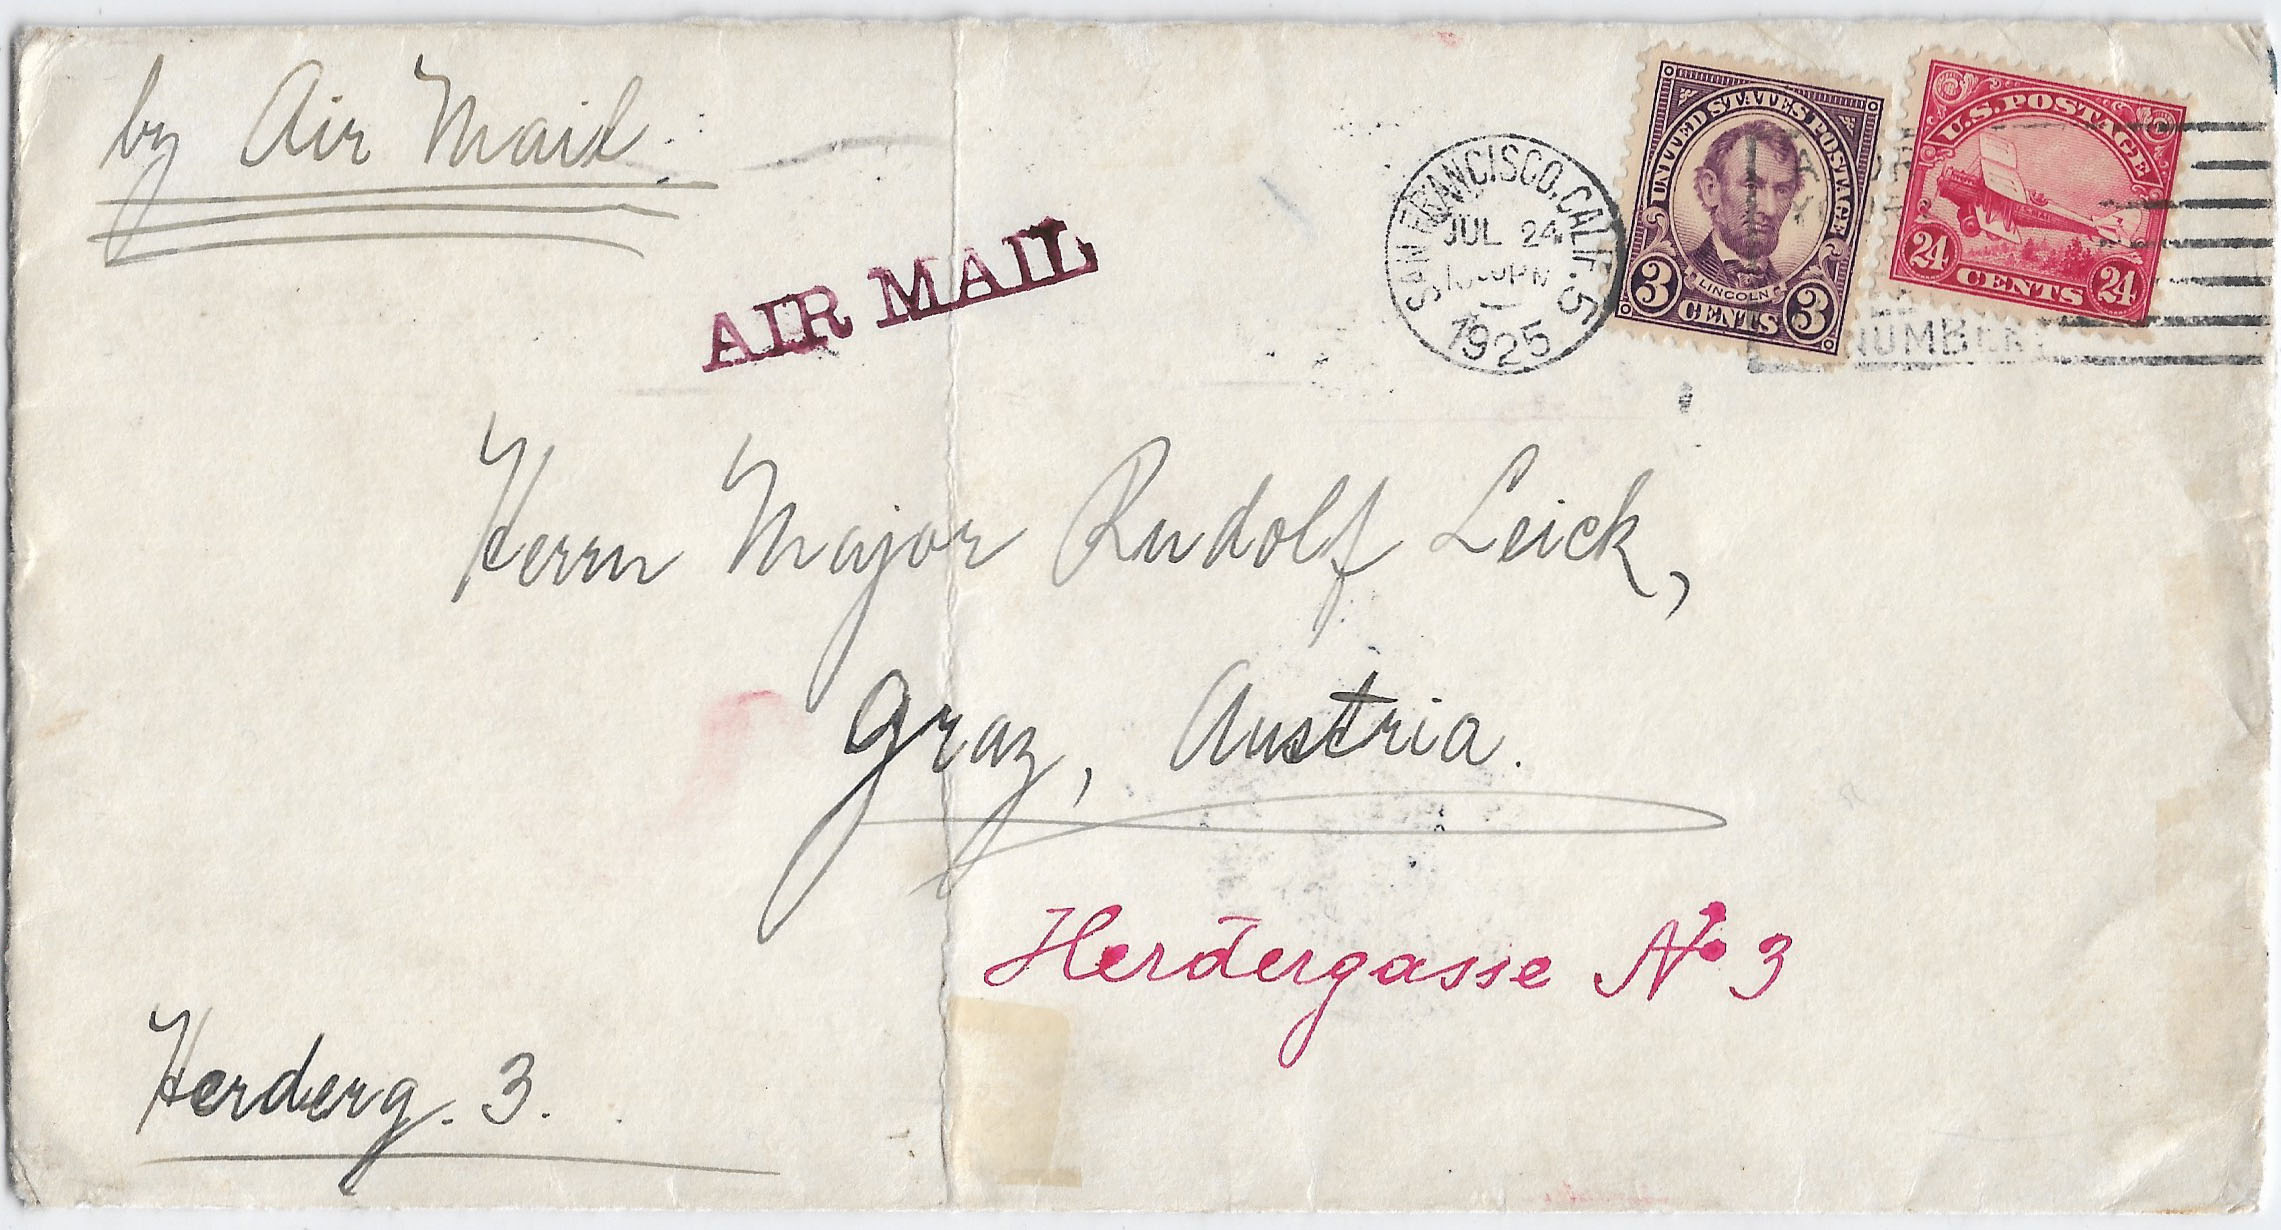 by Air Mail.
AIR MAIL
SAN FRANCISCO, CALIF. 5
JUL 24
PM
1925
UNITED STATES POSTAGE
LINCOLN
3 CENTS 3
U.S. POSTAGE
24 CENTS 24
NUMBER
Herrn Major Rudolf Leick,
Graz, Austria.
Herdergasse No 3
Herderg. 3.